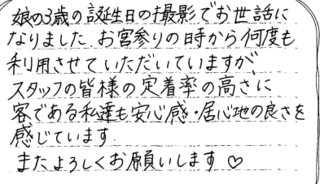 娘の3歳の誕生日の撮影でお世話に
なりました。お宮参りの時から何度も
利用させていただいていますが、
スタッフの皆様の定着率の高さに
客である私達も安心感・居心地の良さを
感じています。
またよろしくお願いします♡